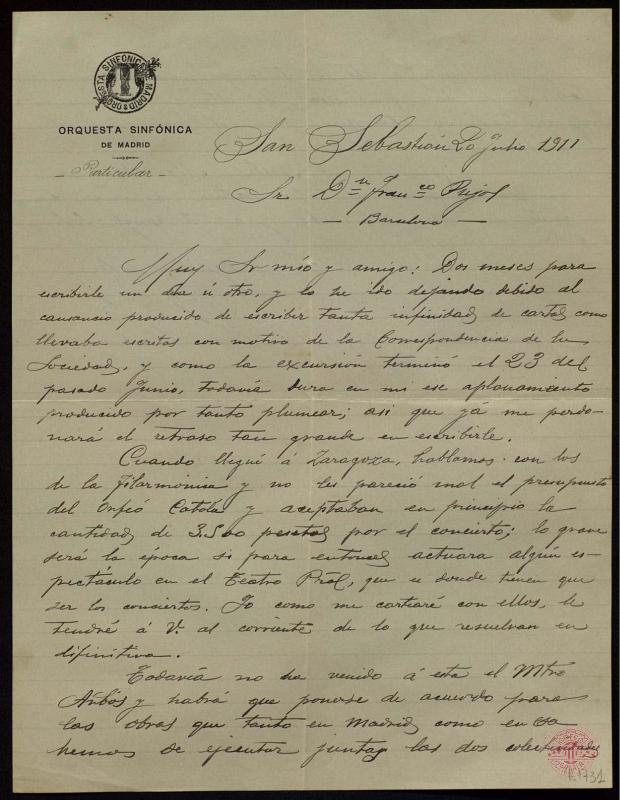 ORQUESTA SINFÓNICA DE MADRID
ORQUESTA SINFÓNICA
DE MADRID
Particular
San Sebastián 20 Julio 1911
Sr. Dn Franco Pujol
Barcelona
Muy Sr mío y amigo: Dos meses para
escribirle un dia ú otro, y lo he ido dejando debido al
cansancio producido de escribir tanta infinidad de cartas como
llevaba escritas con motivo de la Correspondencia de la
Sociedad, y como la excursión terminó el 23 del
pasado Junio, todavía dura en mi ese aplanamiento
producido por tanto plumear; asi que yá me perdo-
nará el retraso tan grande en escribirle.
Cuando llegué á Zaragoza, hablamos con los
de la Filarmonica y no les pareció mal el presupuesto
del Orfeó Catalá y aceptaban en principio la
cantidad de 3.500 pesetas por el concierto; lo grave
será la época si para entonces actuara algún es-
pectáculo en el Teatro Pral, que es donde tienen que
ser los conciertos. Yo como me cartearé con ellos, le
tendré á V. al corriente de lo que resuelvan en
difinitiva.
Todavía no ha venido á esta el Mtro
Arbós y habrá que ponerse de acuerdo para
las obras que tanto en Madrid como en esa
hemos de ejecutar juntas las dos colectividades